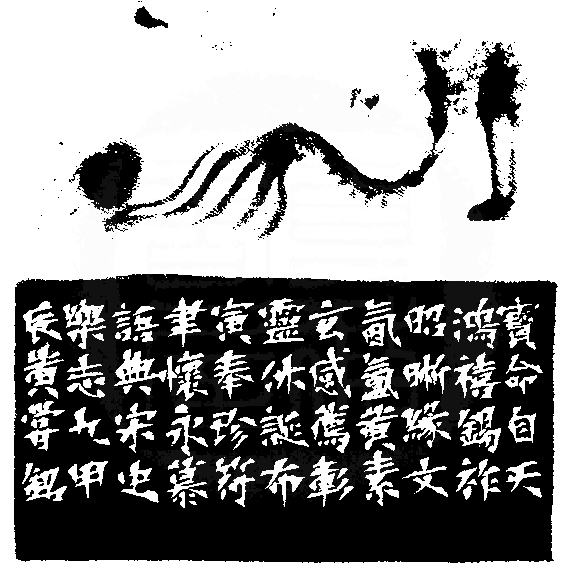 寶命自天
鴻禧錫祚
昭晰緣文
氤氳黃素
玄感薦彰
靈休誕布
寅奉珍符
聿懷永慕
語典宋史
樂志九甲
辰黃